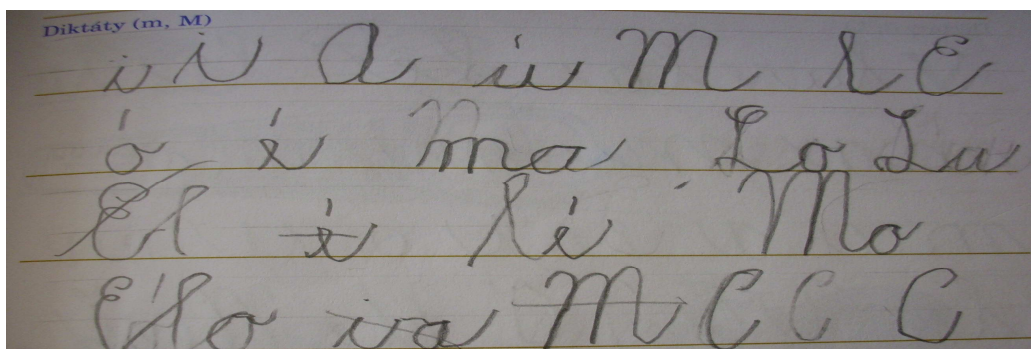 Diktáty (m, M)
i N A ú M l E
ó é ma Lo Lu
El é lé Mo
Élo va M C C C